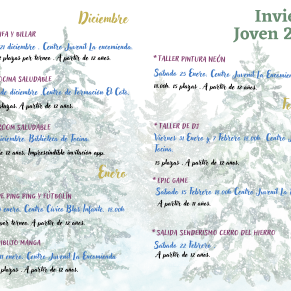 Diciembre
IFA Y BILLAR
diciembre. Centro Juvenil La encomienda.
plazas por torneo. A partir de 12 años.
OCINA SALUDABLE
diciembre. Centro de Formación El Coto.
plazas. A partir de 12 años.
ROOM SALUDABLE
diciembre. Biblioteca de Tocina.
de 12 años. Imprescindible invitación app.
Enero
E PING PING Y FUTBOLÍN
enero. Centro Cívico Blas Infante. 18.00h
por torneo. A partir de 12 años.
IBUJO MANGA
enero. Centro Juvenil La Encomienda
plazas. A partir de 12 años.
Invie
Joven 2
*TALLER PINTURA NEÓN
Sabado 25 Enero. Centro Juvenil La Encomienda
18.00h. 15 plazas. A partir de 12 años.
Fe
*TALLER DE DJ
Viernes 31 Enero y 7 Febrero 18.00h. Centro
Tocina.
15 plazas. A partir de 12 años.
*EPIC GAME
Sabado 15 Febrero 11.00h. Centro Juvenil La
A partir de 11 años.
*SALIDA SENDERISMO CERRO DEL HIERRO
Sabado 22 Febrero
A partir de 12 años.